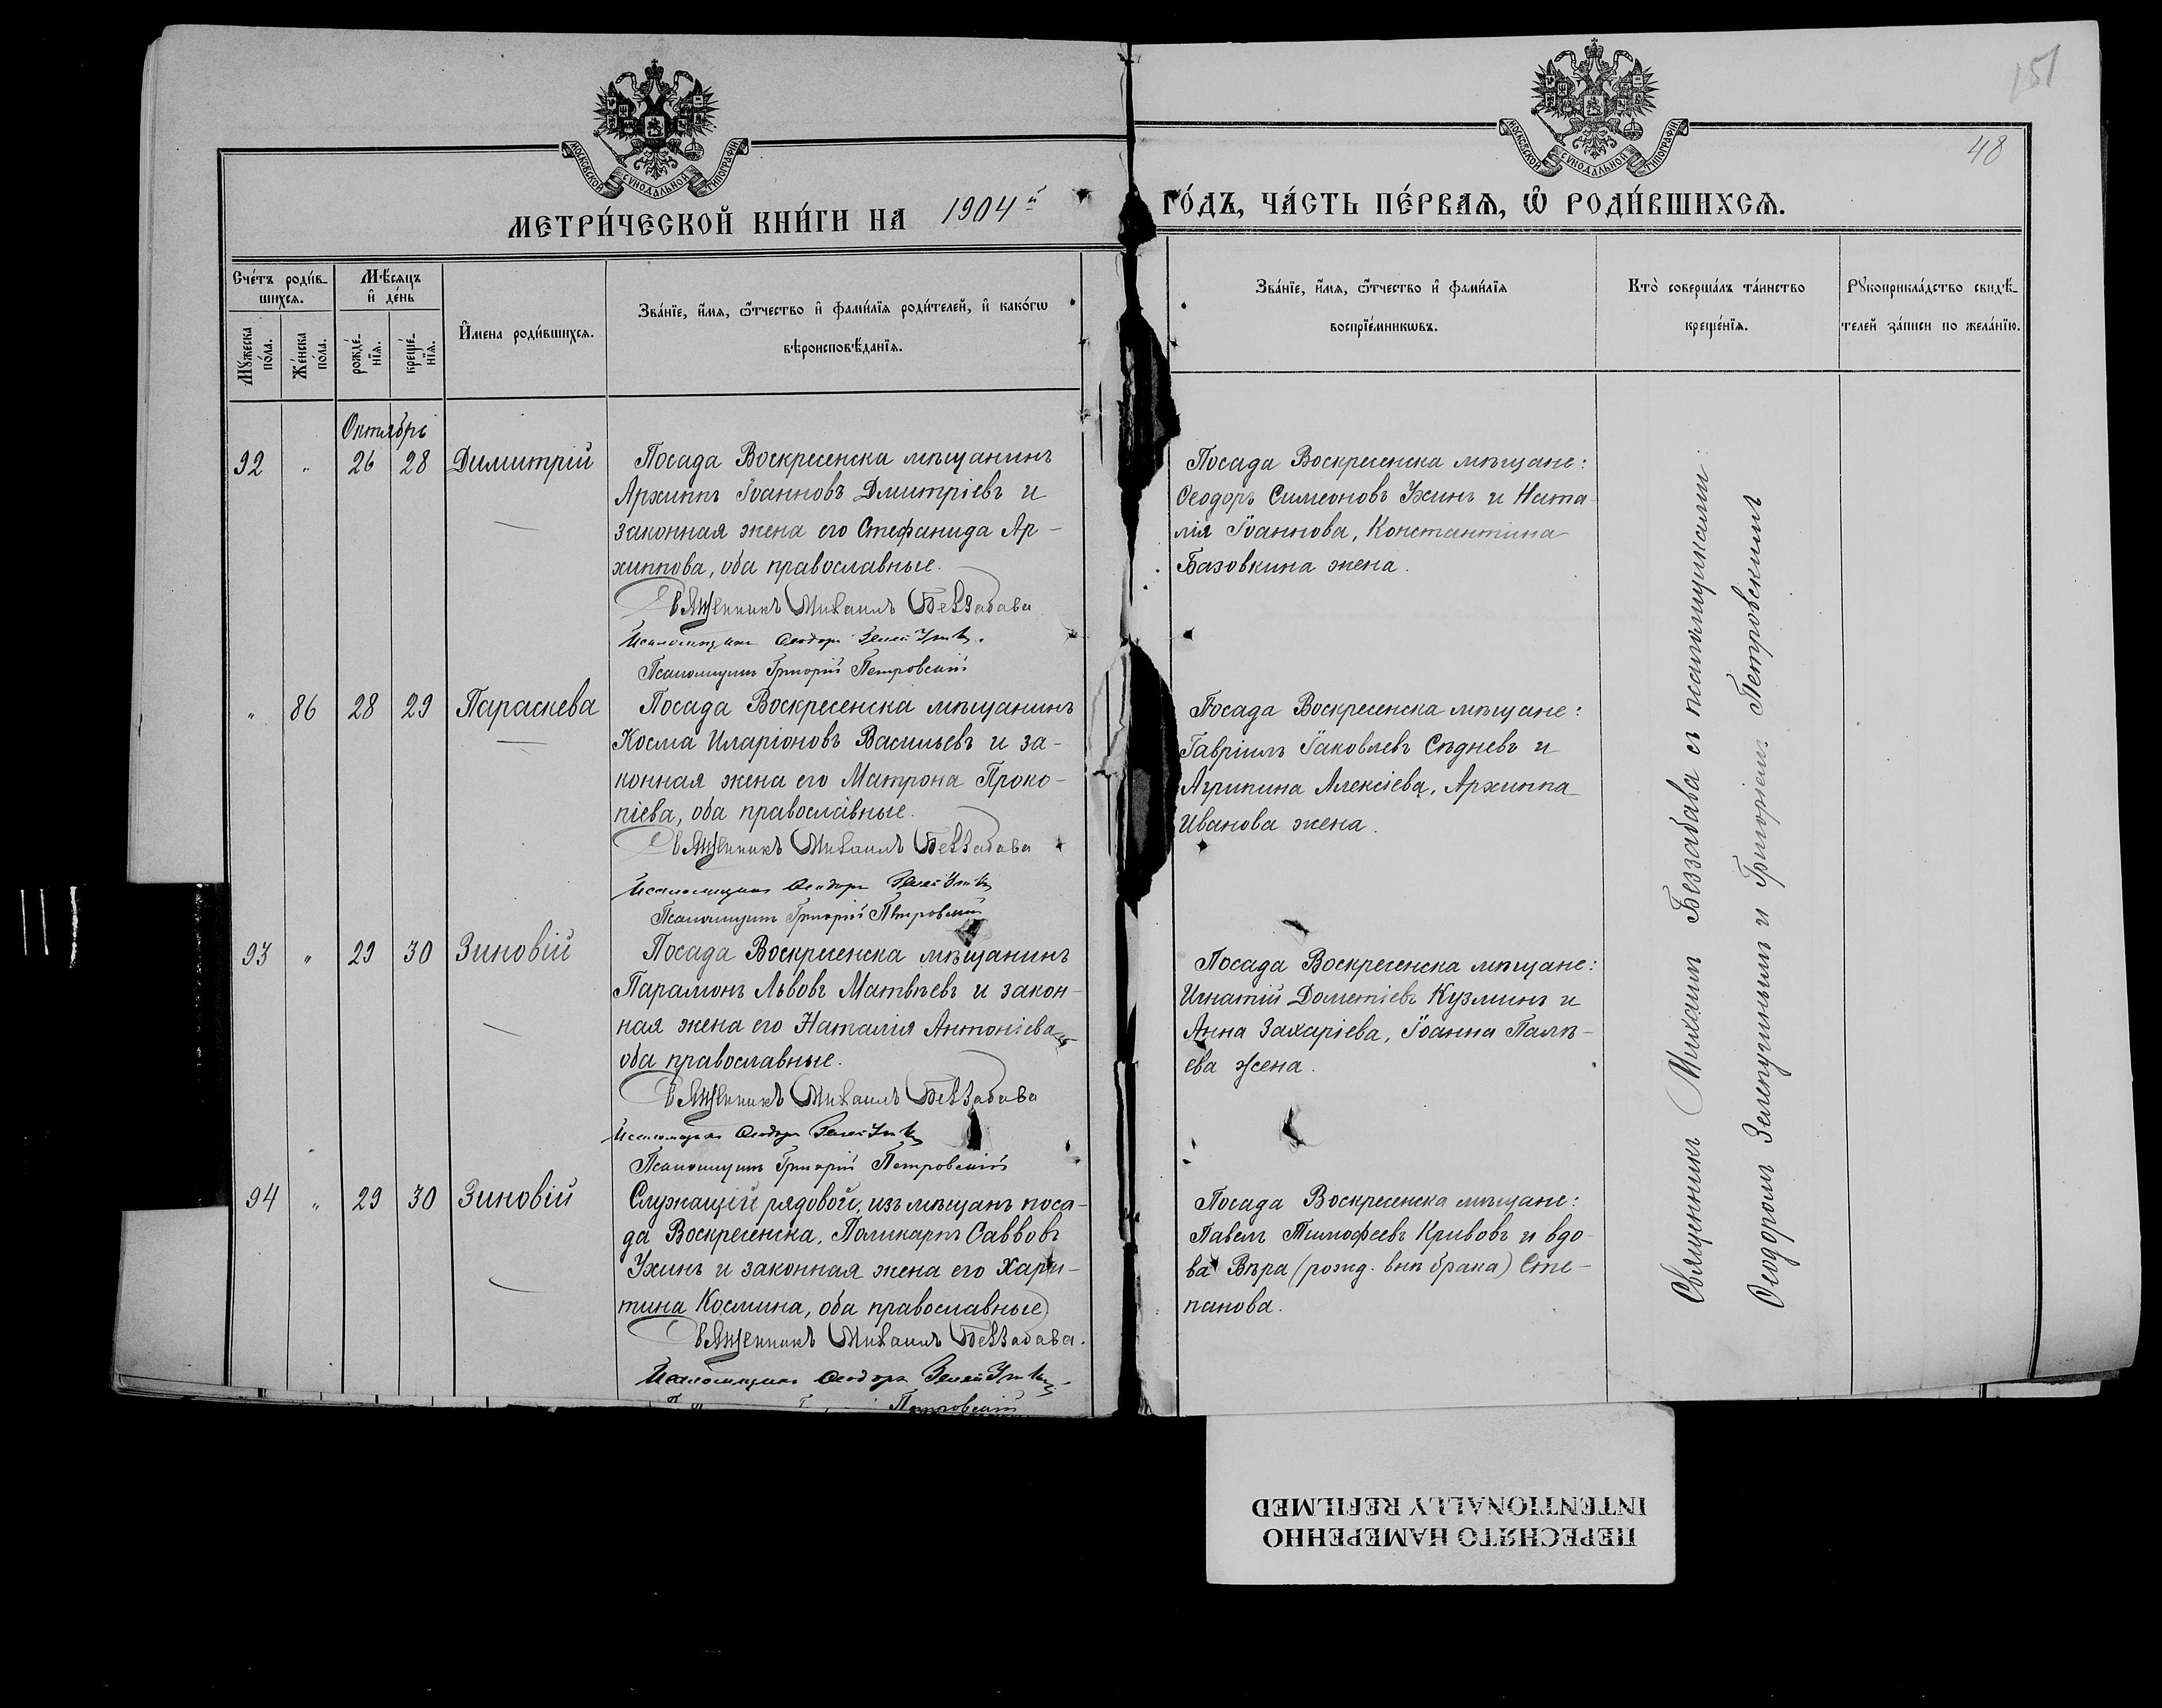 151
48
МОСКОВСКОЙ СУНОДАЛЬНОЙ ТИПОГРАФІИ
МОСКОВСКОЙ СУНОДАЛЬНОЙ ТИПОГРАФІИ
МЕТРИ́ЧЕСКОЙ КНИ́ГИ НА 1904й
ГО́ДЪ, ЧА́СТЬ ПЕ́РВАѦ, Ѽ РОДИ́ВШИХСѦ.
Сче́тъ роди́в-
шихсѧ.
Мꙋ́жеска
по́ла.
Же́нска
по́ла.
Мѣ́сѧцъ
и҆ де́нь
рожде́-
нїѧ.
креще́-
нїѧ.
И҆мена роди́вшихсѧ.
Зва́нїе, и҆́мѧ, ѻ҆́тчество и҆ фами́лїѧ роди́телей, и҆ како́гѡ
вѣроисповѣ́данїѧ.
Зва́нїе, и҆́мѧ, ѻ҆́тчество и҆ фами́лїѧ
воспрїе́мникѡвъ.
Кто̀ соверша́лъ та́инство
креще́нїѧ.
Рꙋкоприкла́дство свидѣ́-
телей за́писи по жела́нїю.
Октябрь
92 " 26 28 Димитрій
Посада Воскресенска мѣщанинъ
Архиппъ Іоанновъ Дмитріевъ и
законная жена его Стефанида Ар-
хиппова, оба православные.
Священникъ Михаилъ Беззабава
Псаломщикъ Ѳеодоръ
Псаломщикъ Григорій Петровскій
Посада Воскресенска мѣщане:
Ѳеодоръ Симеоновъ Ухинъ и Ната-
лія Іоаннова, Константина
Базовкина жена.
" 86 28 29 Параскева
Посада Воскресенска мѣщанинъ
Косма Иларіоновъ Васильевъ и за-
конная жена его Матрона Проко-
піева, оба православные.
Священникъ Михаилъ Беззабава
Псаломщикъ Ѳеодоръ
Псаломщикъ Григорій Петровскій
Посада Воскресенска мѣщане:
Гавріилъ Іаковлевъ Сѣдневъ и
Агрипина Алексіева, Архиппа
Иванова жена.
93 " 29 30 Зиновій
Посада Воскресенска мѣщанинъ
Парамонъ Львовъ Матвѣевъ и закон-
ная жена его Наталія Антоніева,
оба православные.
Священникъ Михаилъ Беззабава
Псаломщикъ Ѳеодоръ
Псаломщикъ Григорій Петровскій
Посада Воскресенска мѣщане:
Игнатій Дометіевъ Кузминъ и
Анна Захаріева, Іоанна Палѣ-
ева жена.
94 " 29 30 Зиновій
Служащій рядовой, изъ мѣщанъ поса-
да Воскресенска, Поликарпъ Саввовъ
Ухинъ и законная жена его Хари-
тина Космина, оба православные.
Священникъ Михаилъ Беззабава.
Псаломщикъ Ѳеодоръ
Петровскій
Посада Воскресенска мѣщане:
Павелъ Тимофеевъ Кривовъ и вдо-
ва Вѣра (рожд. внѣ брака) Сте-
панова.
Священникъ Михаилъ Беззабава съ псаломщиками
Ѳеодоромъ Зеленугинымъ и Григоріемъ Петровскимъ
ПЕРЕСНЯТО НАМЕРЕННО
INTENTIONALLY REFILMED